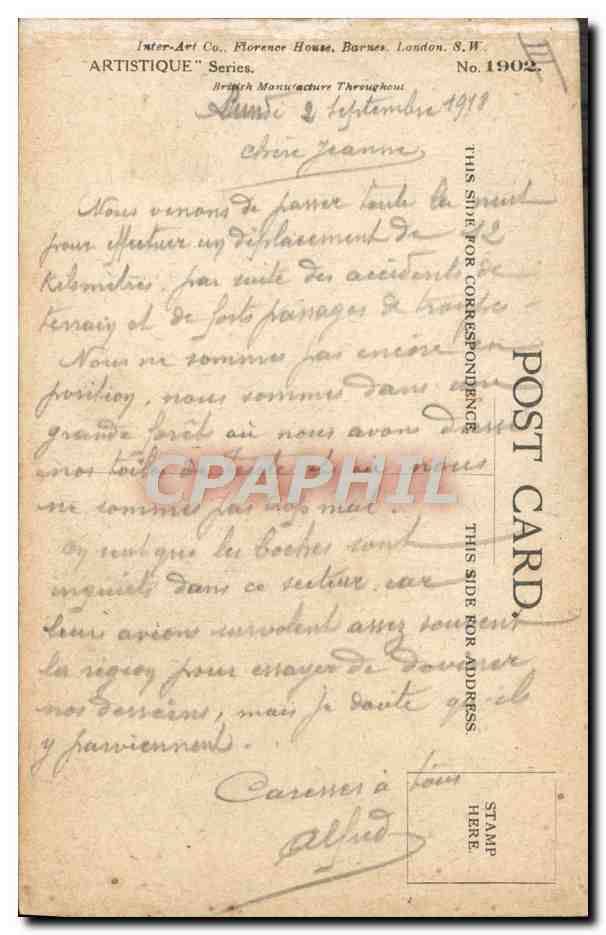 Inter-Art Co., Florence House, Barnes, London. S.W.
"ARTISTIQUE" Series. No. 1902.
British Manufacture Throughout
III
Lundi 2 Septembre 1918
Chère Jeanne,
Nous venons de passer toute la nuit
pour effectuer un déplacement de 12
Kilomètres par suite des accidents de
terrain et de forts passages de troupes -
Nous ne sommes pas encore en
position, nous sommes dans une
grande forêt où nous avons dressé
nos toiles de tente et où nous
ne sommes pas trop mal.
On voit que les boches sont
inquiets dans ce secteur car
leurs avions survolent assez souvent
la région pour essayer de deviner
nos desseins, mais je doute qu'ils
y parviennent.
Caresses à tous
Alfred
THIS SIDE FOR CORRESPONDENCE
THIS SIDE FOR ADDRESS.
POST CARD.
STAMP
HERE.
CPAPHIL